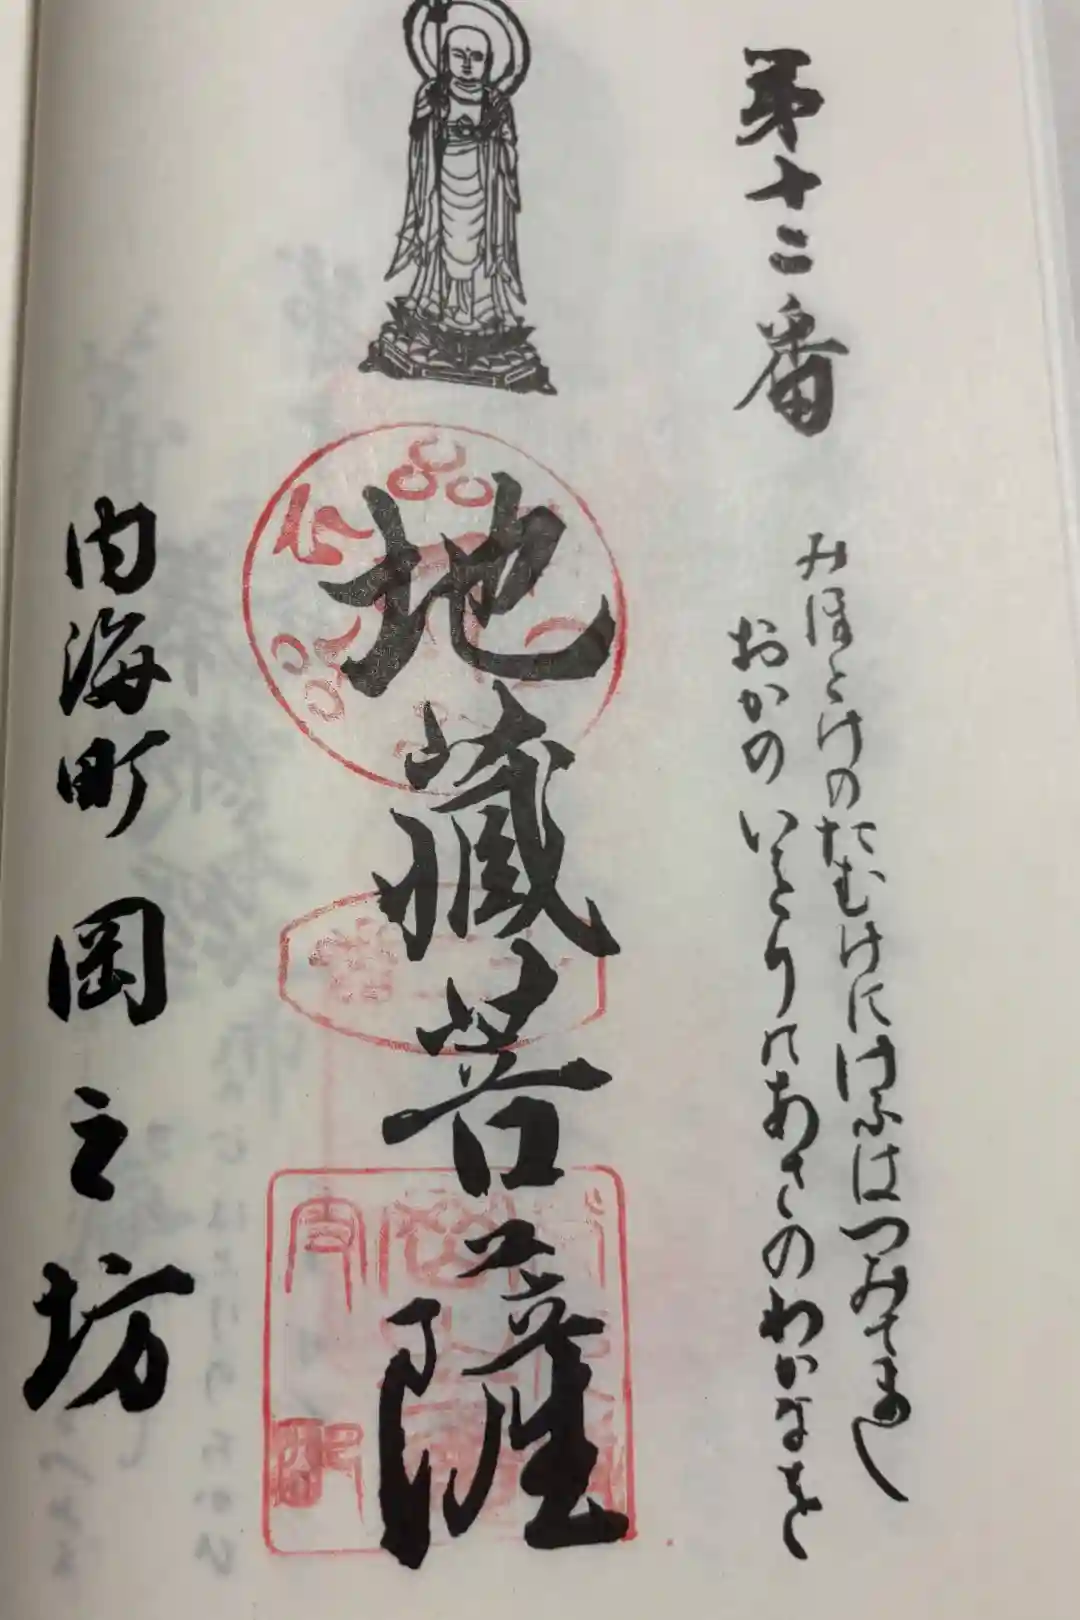 第十二番
みほとけのたむけにけふはつみてまし
おかのいをりのあさゝのわかなを
地蔵菩薩
内海町 岡之坊